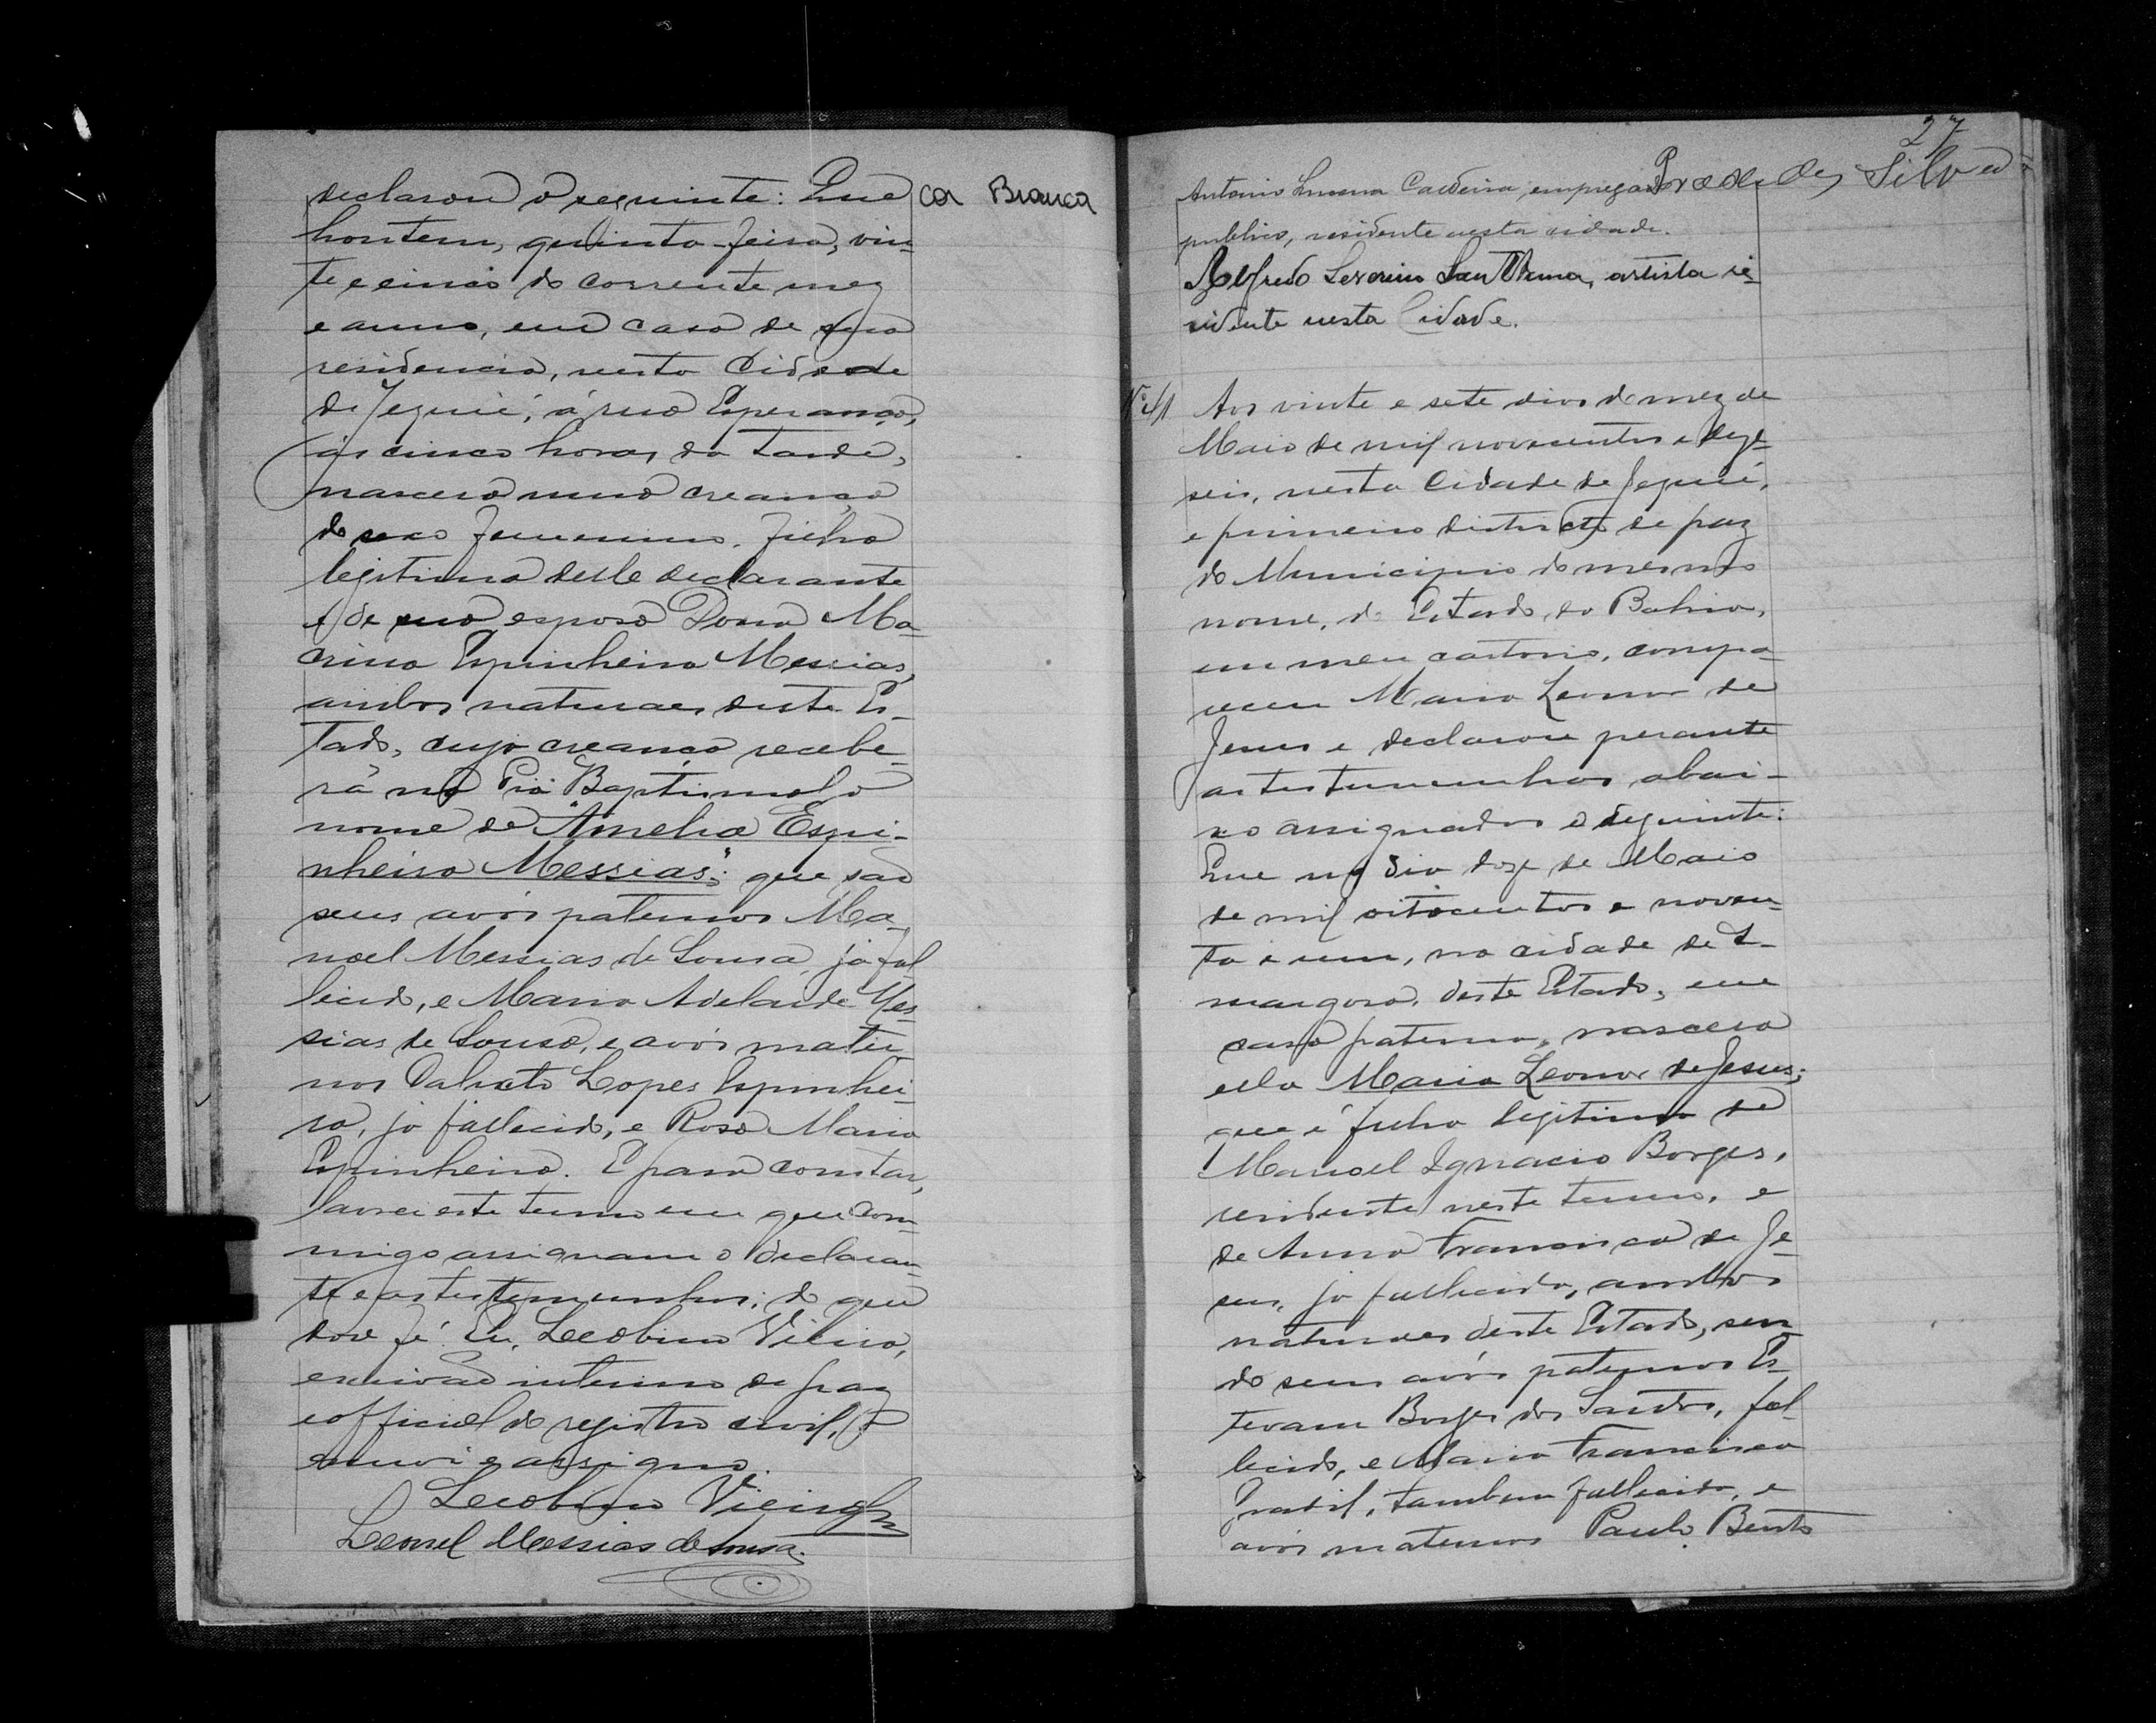 declarou o seguinte: Que
hontem, quinta-feira, vin-
te e cinco do corrente mez
e anno, em casa de sua
residencia, nesta Cidade
de Jequié, á rua Esperança,
ás cinco horas da tarde,
nascera uma creança
do sexo femenino, filha
legitima delle declarante
e de sua esposa Dona Ma-
crina Espinheira Messias,
ambos naturaes deste Es-
tado, cuja creança recebe-
rá na Pia Baptismal o
nome de "Amelia Espi-
nheira Messias"; que são
seus avós paternos Ma-
noel Messias de Sousa, já fal-
lecido, e Maria Adelaide Mes-
sias de Sousa, e avós mater-
nos Lopes Espinhei-
ra, já fallecido, e Rosa Maria
Espinheira. E para constar,
lavrei este termo em que com-
migo assignam o declaran-
te e as testemunhas; do que
dou fé. Eu, Leobino Vieira,
escrivão interino de paz
e official do registro civil, o
escrevi e assigno.
Leobino Vieira
Leonel Messias de Sousa.
cor Branca
27
Antonio Caldeira, empregado
publico, residente nesta cidade.
Alfredo Severino Sant'Anna, artista re-
sidente nesta Cidade.
Nº 41 Aos vinte e sete dias do mez de
Maio de mil novecentos e deze-
seis, nesta Cidade de Jequié,
e primeiro districto de paz
do Municipio do mesmo
nome, do Estado da Bahia,
em meu cartorio, compa-
receu Maria Leonor de
Jesus e declarou perante
as testemunhas abai-
xo assignadas o seguinte:
Que no dia doze de Maio
de mil oitocentos e noven-
ta e um, na cidade de A-
margosa, deste Estado, em
casa paterna, nascera
ella Maria Leonor de Jesus;
que é filha legitima de
Manoel Ignacio Borges,
residente neste termo, e
de Anna Francisca de Je-
sus, já fallecida, ambos
naturaes deste Estado, sen-
do seus avós paternos Es-
tevam Borges dos Santos, fal-
lecido, e Maria Francisca
tambem fallecida, e
avós maternos Paulo Bento
Silva